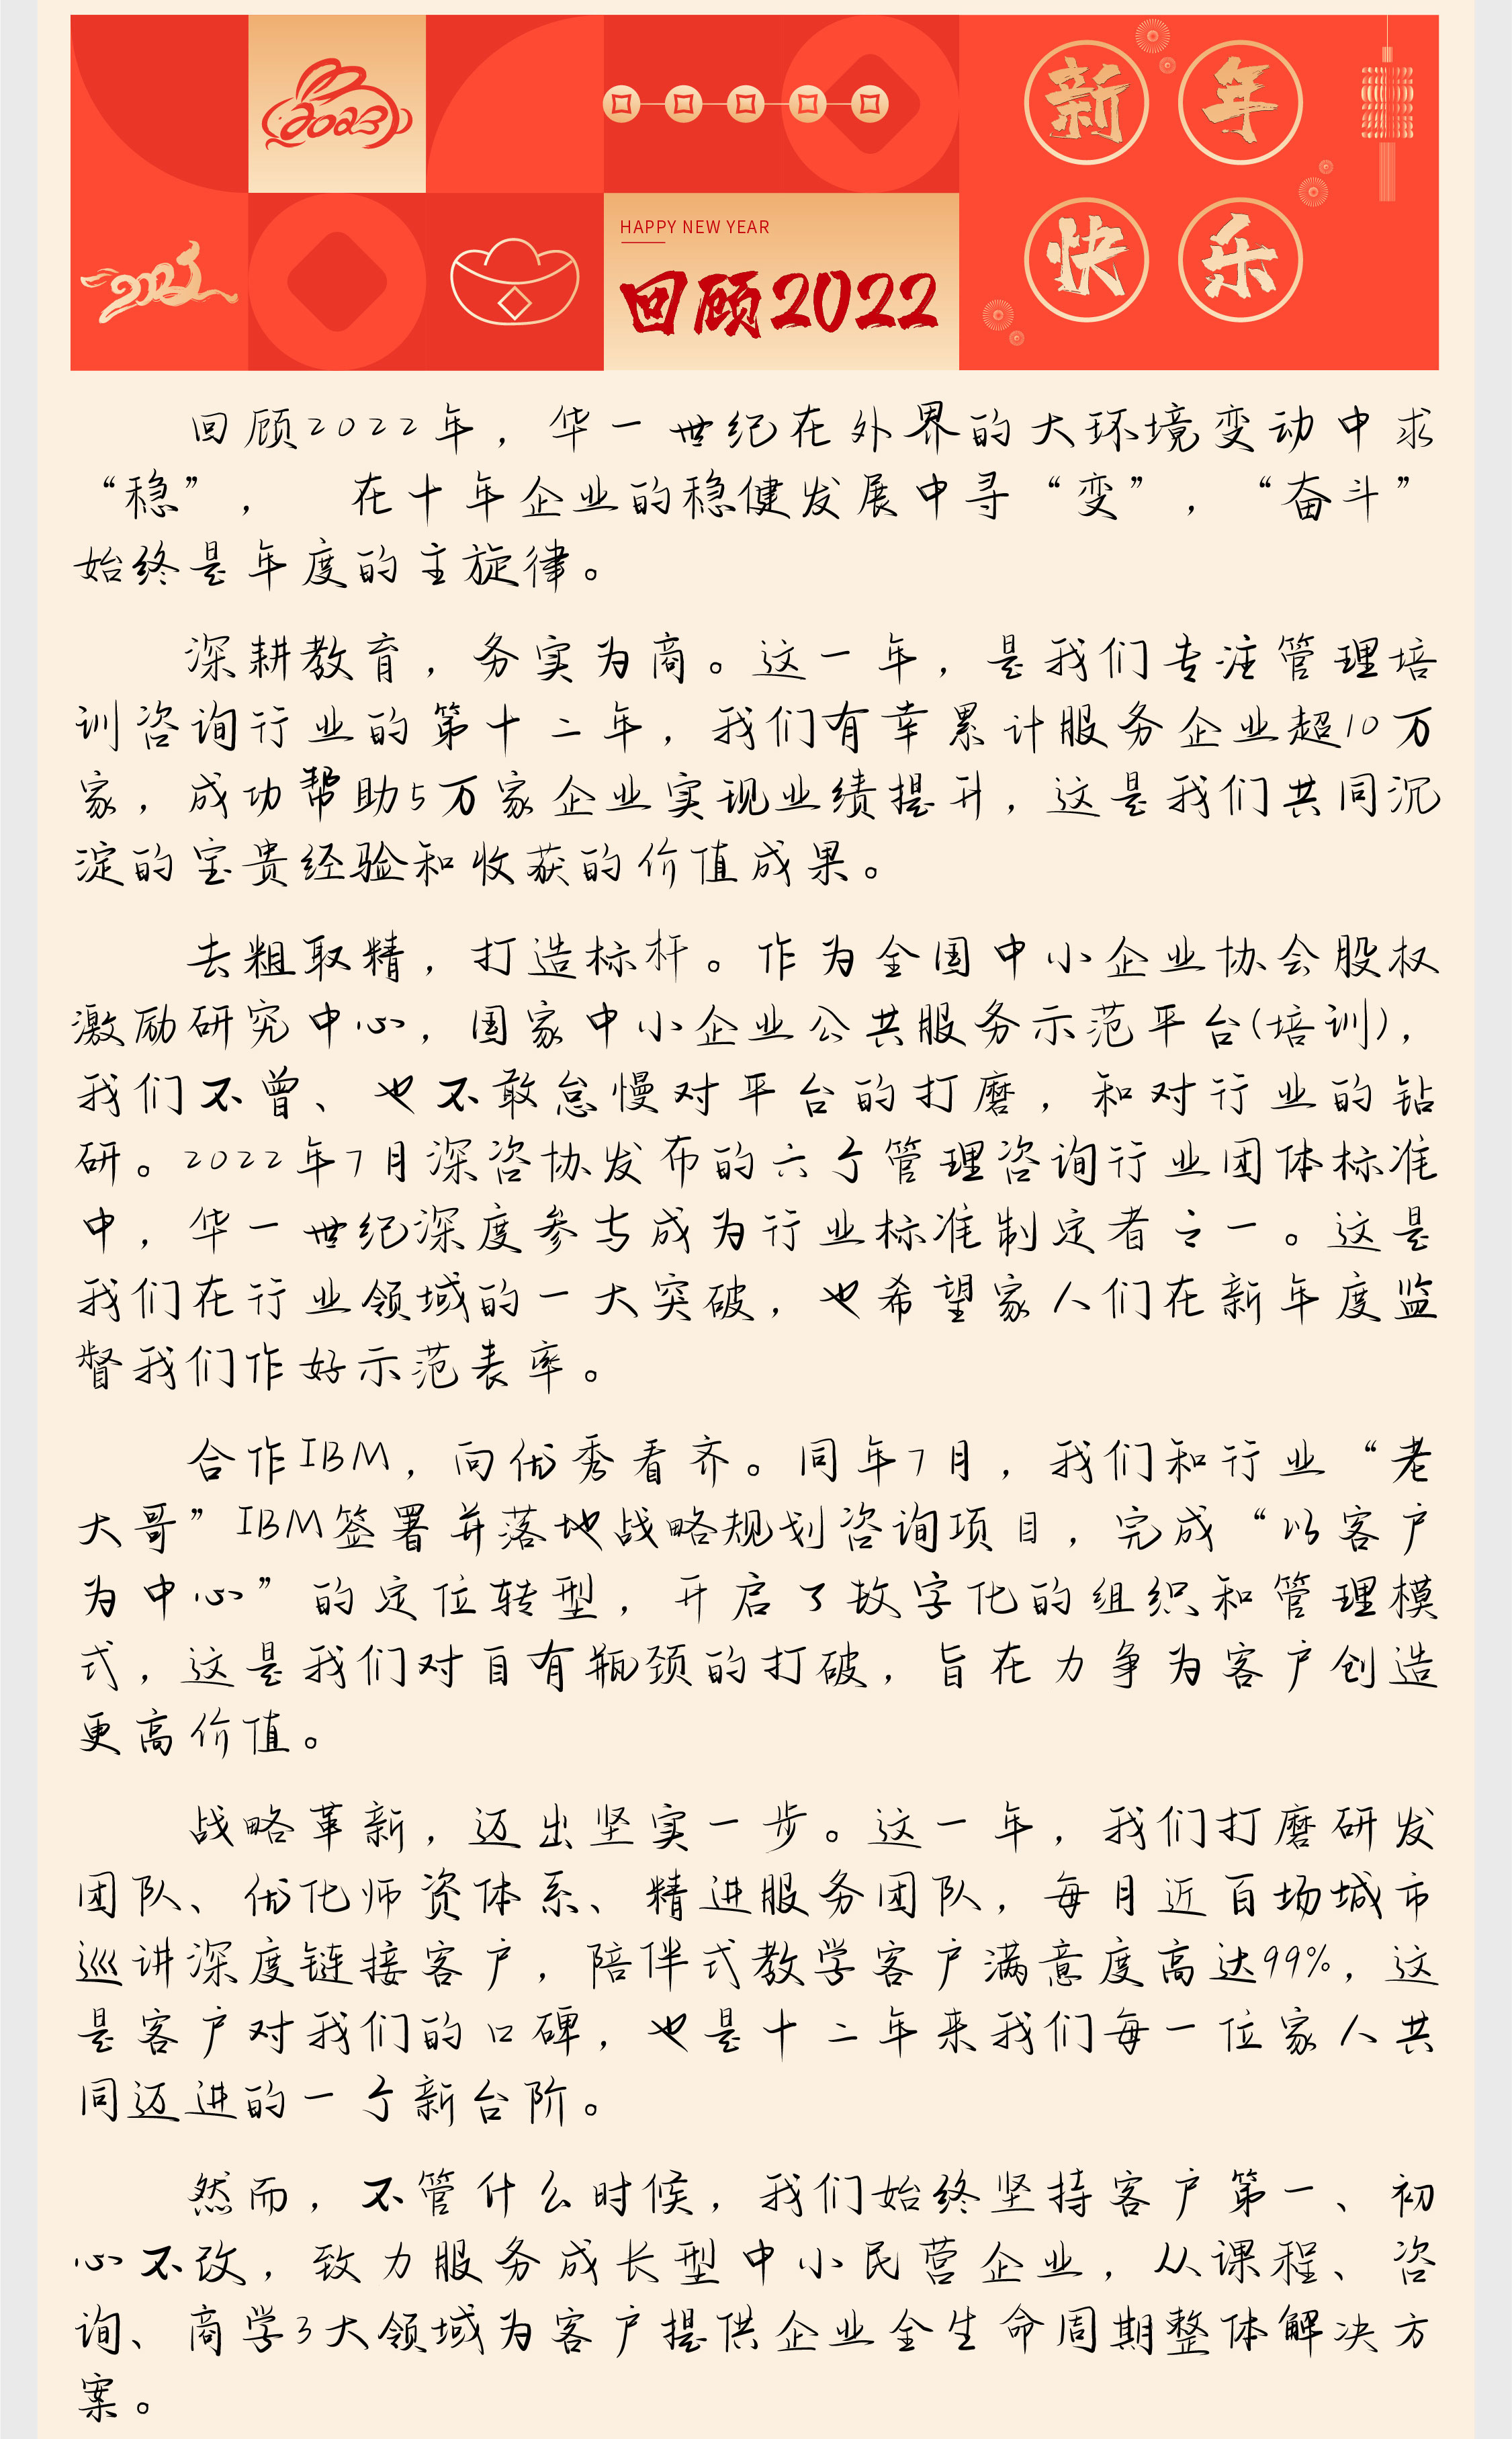 2023
新年
HAPPY NEW YEAR
快乐
2023
回顾2022
回顾2022年，华一世纪在外界的大环境变动中求
“稳”，在十年企业的稳健发展中寻“变”，“奋斗”
始终是年度的主旋律。
深耕教育，务实为商。这一年，是我们专注管理培
训咨询行业的第十二年，我们有幸累计服务企业超10万
家，成功帮助5万家企业实现业绩提升，这是我们共同沉
淀的宝贵经验和收获的价值成果。
去粗取精，打造标杆。作为全国中小企业协会股权
激励研究中心，国家中小企业公共服务示范平台(培训)，
我们不曾、也不敢怠慢对平台的打磨，和对行业的钻
研。2022年7月深咨协发布的六个管理咨询行业团体标准
中，华一世纪深度参与成为行业标准制定者之一。这是
我们在行业领域的一大突破，也希望家人们在新年度监
督我们作好示范表率。
合作IBM，向优秀看齐。同年7月，我们和行业“老
大哥”IBM签署并落地战略规划咨询项目，完成“以客户
为中心”的定位转型，开启了数字化的组织和管理模
式，这是我们对自有瓶颈的打破，旨在力争为客户创造
更高价值。
战略革新，迈出坚实一步。这一年，我们打磨研发
团队、优化师资体系、精进服务团队，每月近百场城市
巡讲深度链接客户，陪伴式教学客户满意度高达99%，这
是客户对我们的口碑，也是十二年来我们每一位家人共
同迈进的一个新台阶。
然而，不管什么时候，我们始终坚持客户第一、初
心不改，致力服务成长型中小民营企业，从课程、咨
询、商学3大领域为客户提供企业全生命周期整体解决方
案。